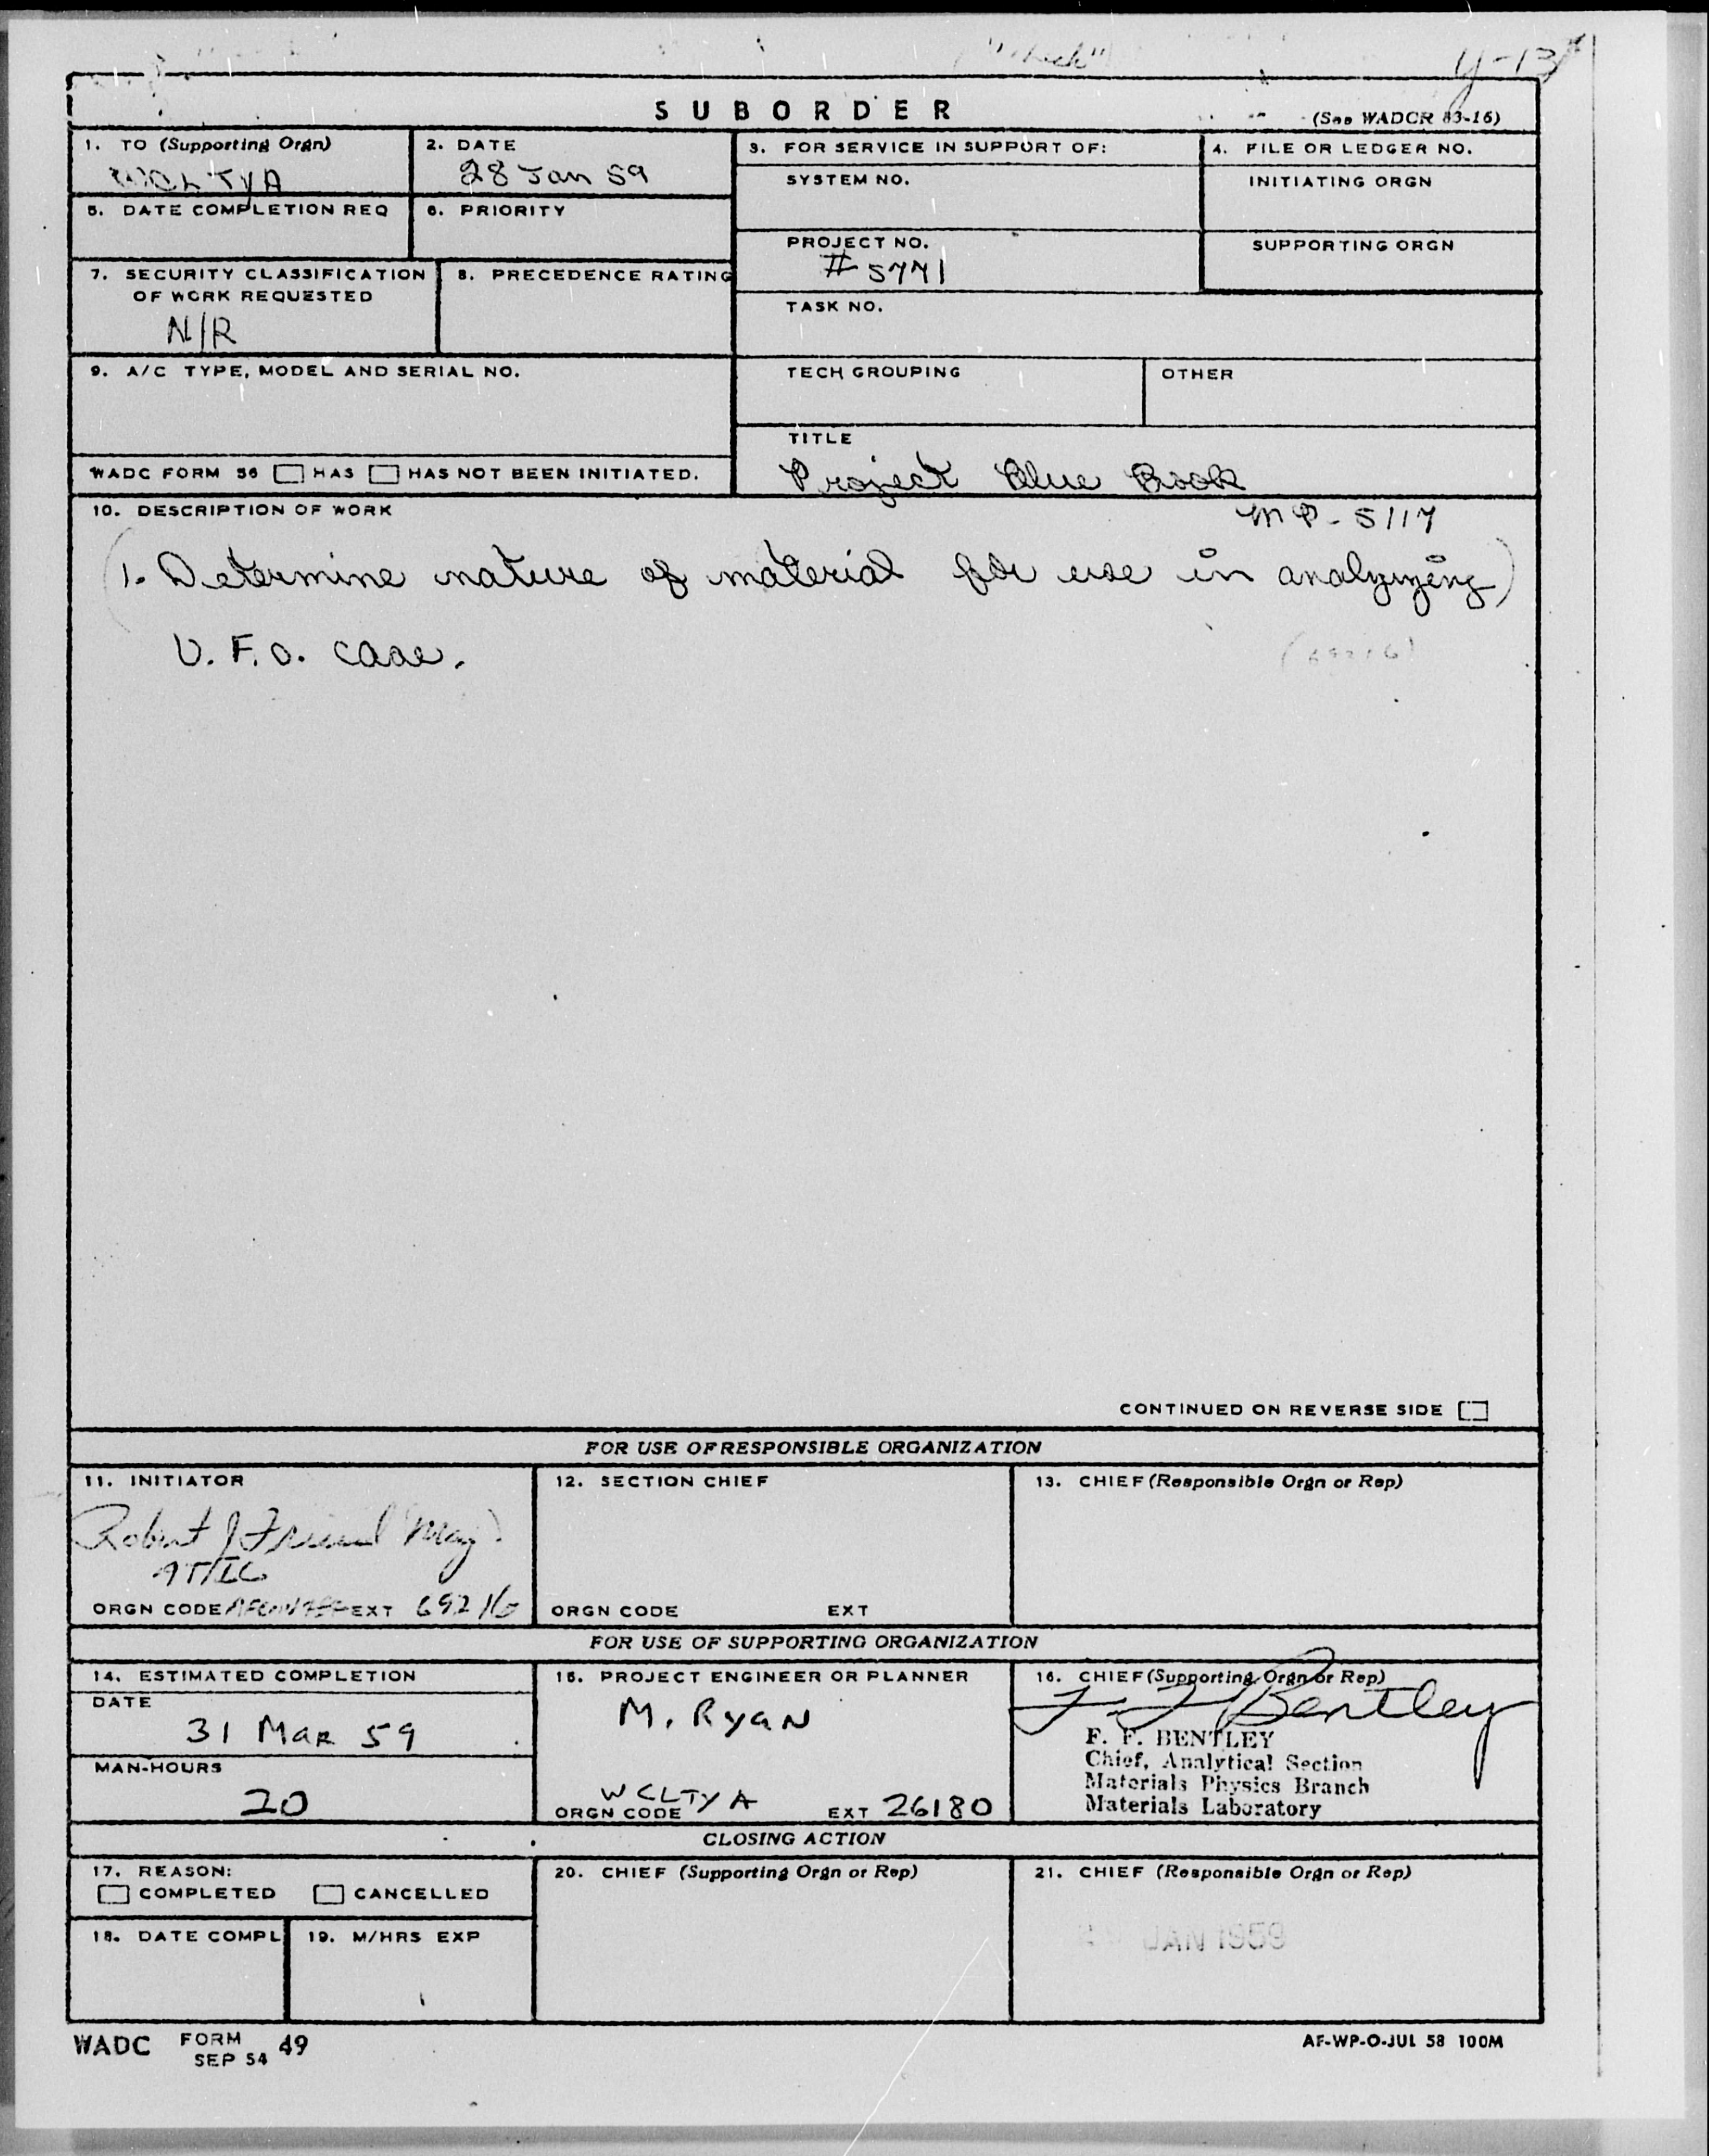 Y-13
SUBORDER
(See WADCR 83-16)
1. TO (Supporting Orgn)
WCLTYA
2. DATE
28 Jan 59
3. FOR SERVICE IN SUPPORT OF:
SYSTEM NO.
4. FILE OR LEDGER NO.
INITIATING ORGN
5. DATE COMPLETION REQ
6. PRIORITY
PROJECT NO.
# 5771
SUPPORTING ORGN
7. SECURITY CLASSIFICATION
OF WORK REQUESTED
N/R
8. PRECEDENCE RATING
TASK NO.
9. A/C TYPE, MODEL AND SERIAL NO.
TECH GROUPING
OTHER
TITLE
Project Blue Book
WADC FORM 56 HAS HAS NOT BEEN INITIATED.
10. DESCRIPTION OF WORK
MP-5117
(1. Determine nature of material for use in analyzing)
U.F.O. case.
(69216)
CONTINUED ON REVERSE SIDE
FOR USE OF RESPONSIBLE ORGANIZATION
11. INITIATOR
Robert J Friend Maj.
ATIC
ORGN CODE EXT 69216
12. SECTION CHIEF
ORGN CODE EXT
13. CHIEF (Responsible Orgn or Rep)
FOR USE OF SUPPORTING ORGANIZATION
14. ESTIMATED COMPLETION
DATE
31 Mar 59
MAN-HOURS
20
15. PROJECT ENGINEER OR PLANNER
M. Ryan
WCLTYA
ORGN CODE EXT 26180
16. CHIEF (Supporting Orgn or Rep)
F F Bentley
F. F. BENTLEY
Chief, Analytical Section
Materials Physics Branch
Materials Laboratory
CLOSING ACTION
17. REASON:
COMPLETED CANCELLED
18. DATE COMPL
19. M/HRS EXP
20. CHIEF (Supporting Orgn or Rep)
21. CHIEF (Responsible Orgn or Rep)
JAN 1959
WADC FORM SEP 54 49
AF-WP-O-JUL 58 100M